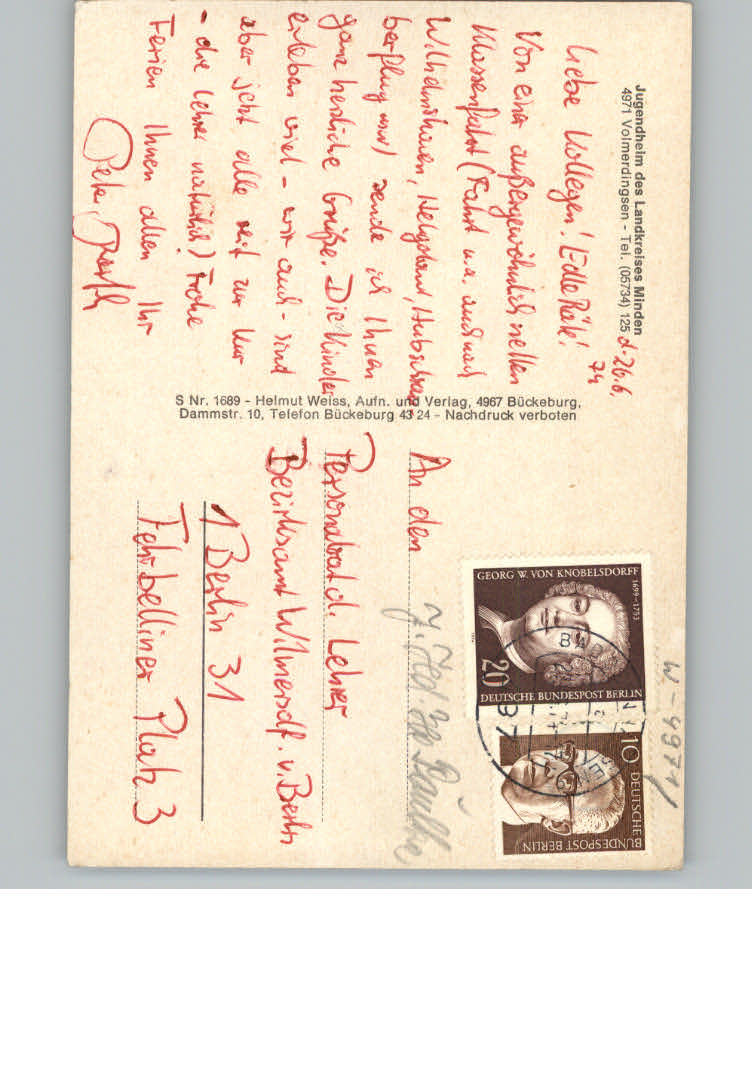 Jugendheim des Landkreises Minden
4971 Volmerdingsen - Tel. (05734) 125
d. 26.6.
74
Liebe Kollegen! Edle Räte!
Von einer außergewöhnlich netten
Klassenfahrt (Fahrt u.a. auch nach
Wilhelmshaven, Helgoland,
) sende ich Ihnen
ganz herzliche Grüße. Die Kinder
erleben viel - wir auch - sind
aber jetzt alle reif zur Kur
- die Lehrer natürlich) Frohe
Ferien Ihnen allen Ihr
Peter
S Nr. 1689 - Helmut Weiss, Aufn. und Verlag, 4967 Bückeburg,
Dammstr. 10, Telefon Bückeburg 43 24 - Nachdruck verboten
An den
Personalrat d. Lehrer
Bezirksamt Wilmersdf. v. Berlin
1 Berlin 31
Fehrbelliner Platz 3
GEORG W. VON KNOBELSDORFF
1699-1753
20
DEUTSCHE BUNDESPOST BERLIN
10
DEUTSCHE
BUNDESPOST BERLIN
W-4971/